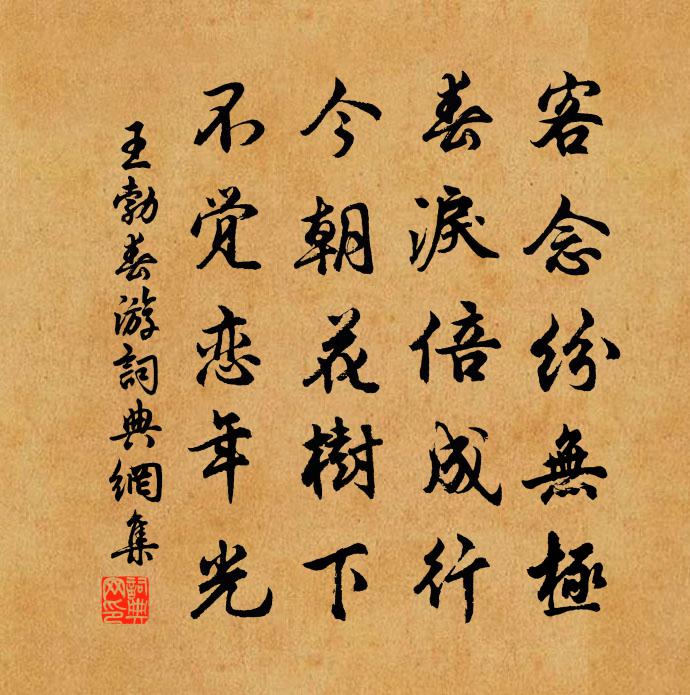 客念紛無極
春淚倍成行
今朝花樹下
不觉恋年光
王勃春游詞典網集
詞典网印